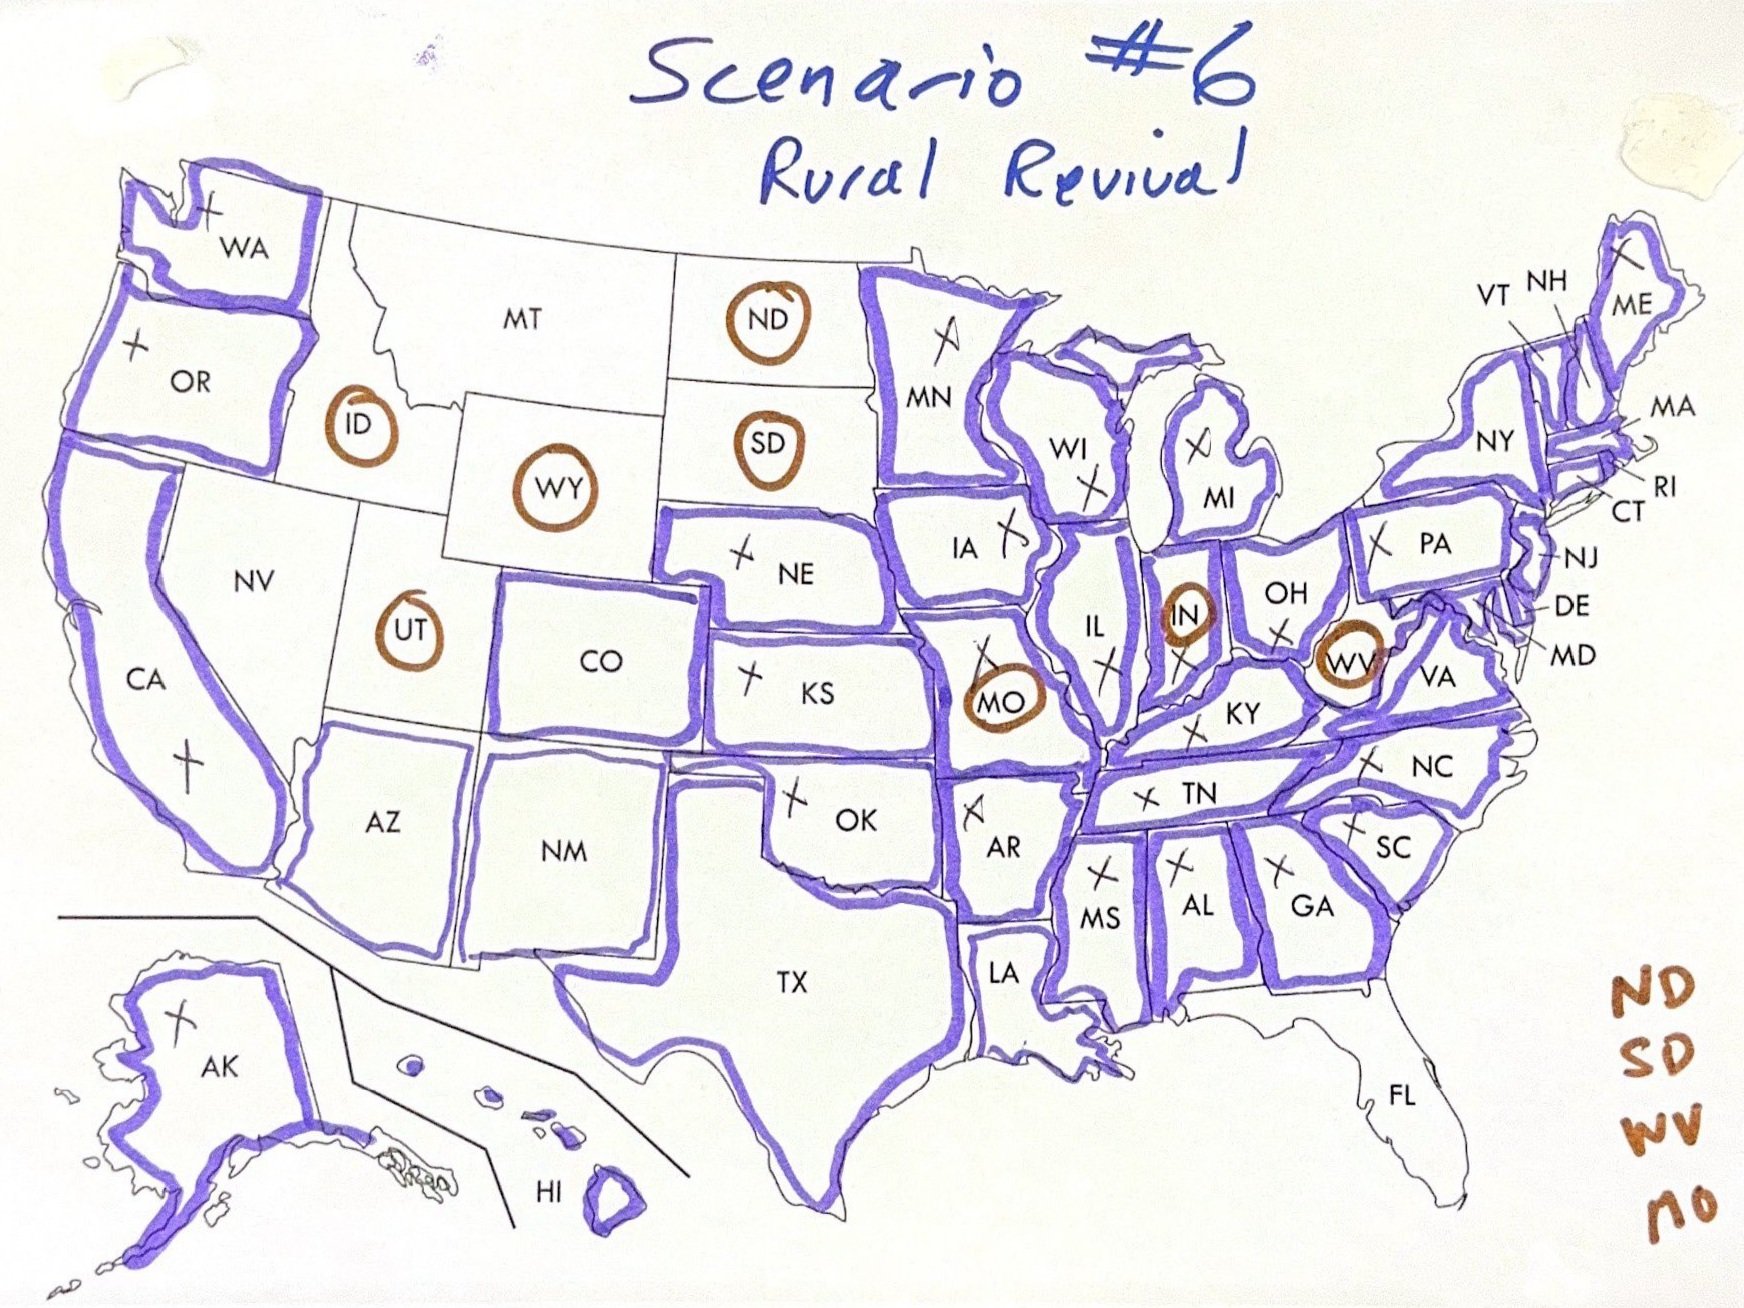 Scenario #6
Rural Revival
WA
MT
ND
OR
ID
SD
WY
MN
WI
MI
VT
NH
ME
NY
MA
RI
CT
NJ
DE
MD
PA
NV
UT
CO
NE
IA
IL
IN
OH
WV
VA
CA
KS
MO
KY
AZ
NM
OK
AR
TN
NC
SC
MS
AL
GA
TX
LA
FL
AK
HI
ND
SD
WV
MO